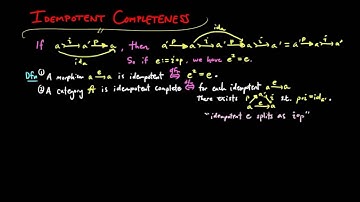 IDEMPOTENT COMPLETENESS
If a →i a' →p a, id_a, then a' →p a →i a' →p a →i a' = a' →p a →i a'
So if e := i∘p, we have e² = e.
Dfn ① A morphism a →e a is idempotent ⇔dfn e² = e.
② A category A is idempotent complete ⇔dfn for each idempotent a →e a
There exists p a' i s.t. p∘i = id_a'.
a →e a
~"idempotent e splits as i∘p"